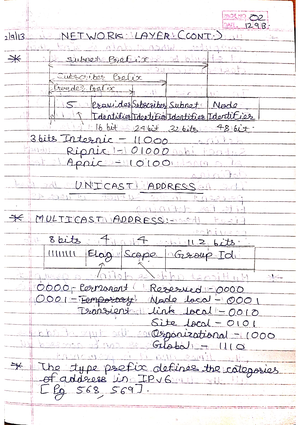 02
2/9/13 NETWORK LAYER (CONT.)
* Subnet Prefix
Subscriber Prefix
Provider Prefix
5 Provider Subscriber Subnet Node
Identifier Identifier Identifier Identifier
16 bit 24 bit 32 bits 48 bit
3 bits Internic - 11000
Ripnic - 01000
Apnic - 10100
UNICAST ADDRESS
* MULTICAST ADDRESS:-
8 bits 4 4 112 bits.
11111111 Flag Scope Group Id.
0000 - Permanent Reserved - 0000
0001 - Temporary Node local - 0001
Transient link local - 0010
Site local - 0101
Organizational - 1000
Global - 1110
* The type prefix defines the categories
of address in IPv6
[Pg 568, 569].